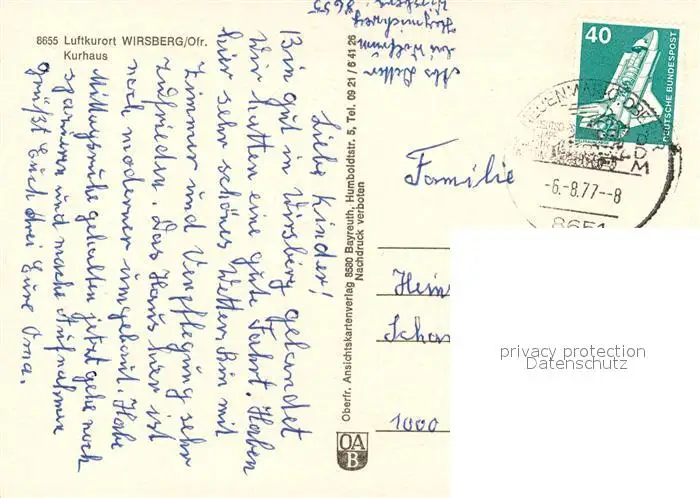 8655 Luftkurort WIRSBERG/Ofr.
Kurhaus
Liebe Kinder!
Bin gut in Wirsberg gelandet
Wir hatten eine gute Fahrt. Haben
hier sehr schönes Wetter. Bin mit
Zimmer und Verpflegung sehr
zufrieden. Das Haus hier ist
noch moderner umgebaut. Habe
Mittagsruhe gehalten jetzt gehe noch
spazieren und mache Aufnahmen
grüßt Euch drei Eure Oma.
Wirsberg 8655
Oberfr. Ansichtskartenverlag 8580 Bayreuth, Humboldtstr. 5, Tel. 09 21 / 6 41 26
Nachdruck verboten
OA
B
40
DEUTSCHE BUNDESPOST
-6.-8.77--8
8651
Familie
Hein
Scha
1000
privacy protection
Datenschutz